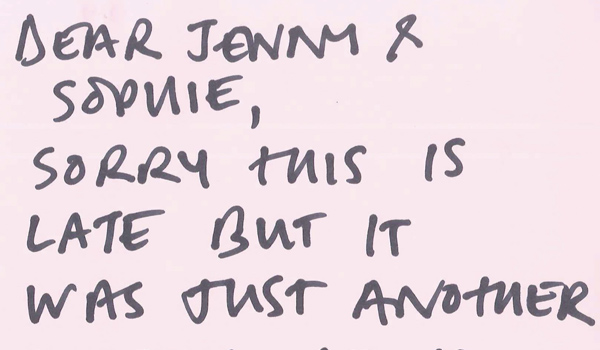 DEAR JENNY &
SOPHIE,
SORRY THIS IS
LATE BUT IT
WAS JUST ANOTHER